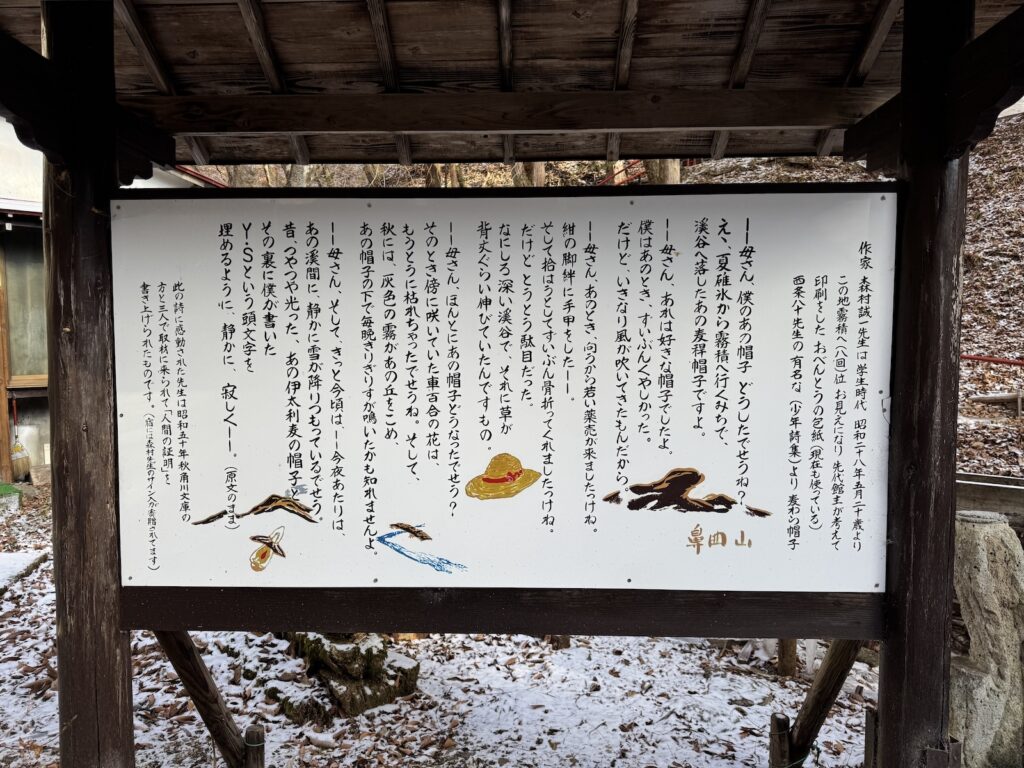 作家 森村誠一先生は学生時代 昭和二十八年五月二十歳より
この地霧積へ(八回)位 お見えになり 先代館主が考えて
印刷をした おべんとうの包紙(現在も使っている)
西条八十先生の有名な(少年詩集)より 麦わら帽子
――母さん、僕のあの帽子 どうしたでせうね?
えゝ、夏碓氷から霧積へ行くみちで、
渓谷へ落したあの麦稈帽子ですよ。
――母さん、あれは好きな帽子でしたよ。
僕はあのとき、ずいぶんくやしかった。
だけど、いきなり風が吹いてきたもんだから。
――母さん、あのとき、向うから若い薬売が来ましたっけね。
紺の脚絆に手甲をした――。
そして拾はうとしてずいぶん骨折ってくれましたっけね。
だけどとうとう駄目だった。
なにしろ深い渓谷で、それに草が
背丈ぐらい伸びていたんですもの。
――母さん、ほんとにあの帽子どうなったでせう?
そのとき傍に咲いていた車百合の花は、
もうとうに枯れちゃったでせうね。そして、
秋には、灰色の霧があの丘をこめ、
あの帽子の下で毎晩きりぎりすが鳴いたかも知れませんよ。
――母さん、そして、きっと今頃は、――今夜あたりは、
あの渓間に、静かに雪が降りつもっているでせう。
昔、つやつや光った、あの伊太利麦の帽子と
その裏に僕が書いた
Y・Sという頭文字を
埋めるように、静かに、寂しく――。(原文のまま)
此の詩に感動された先生は昭和五十年秋角川文庫の
方と三人で取材に来られて「人間の証明」を、
書き上げられたものです。(宿には森村先生のサイン入が寄贈されてます)
鼻曲山